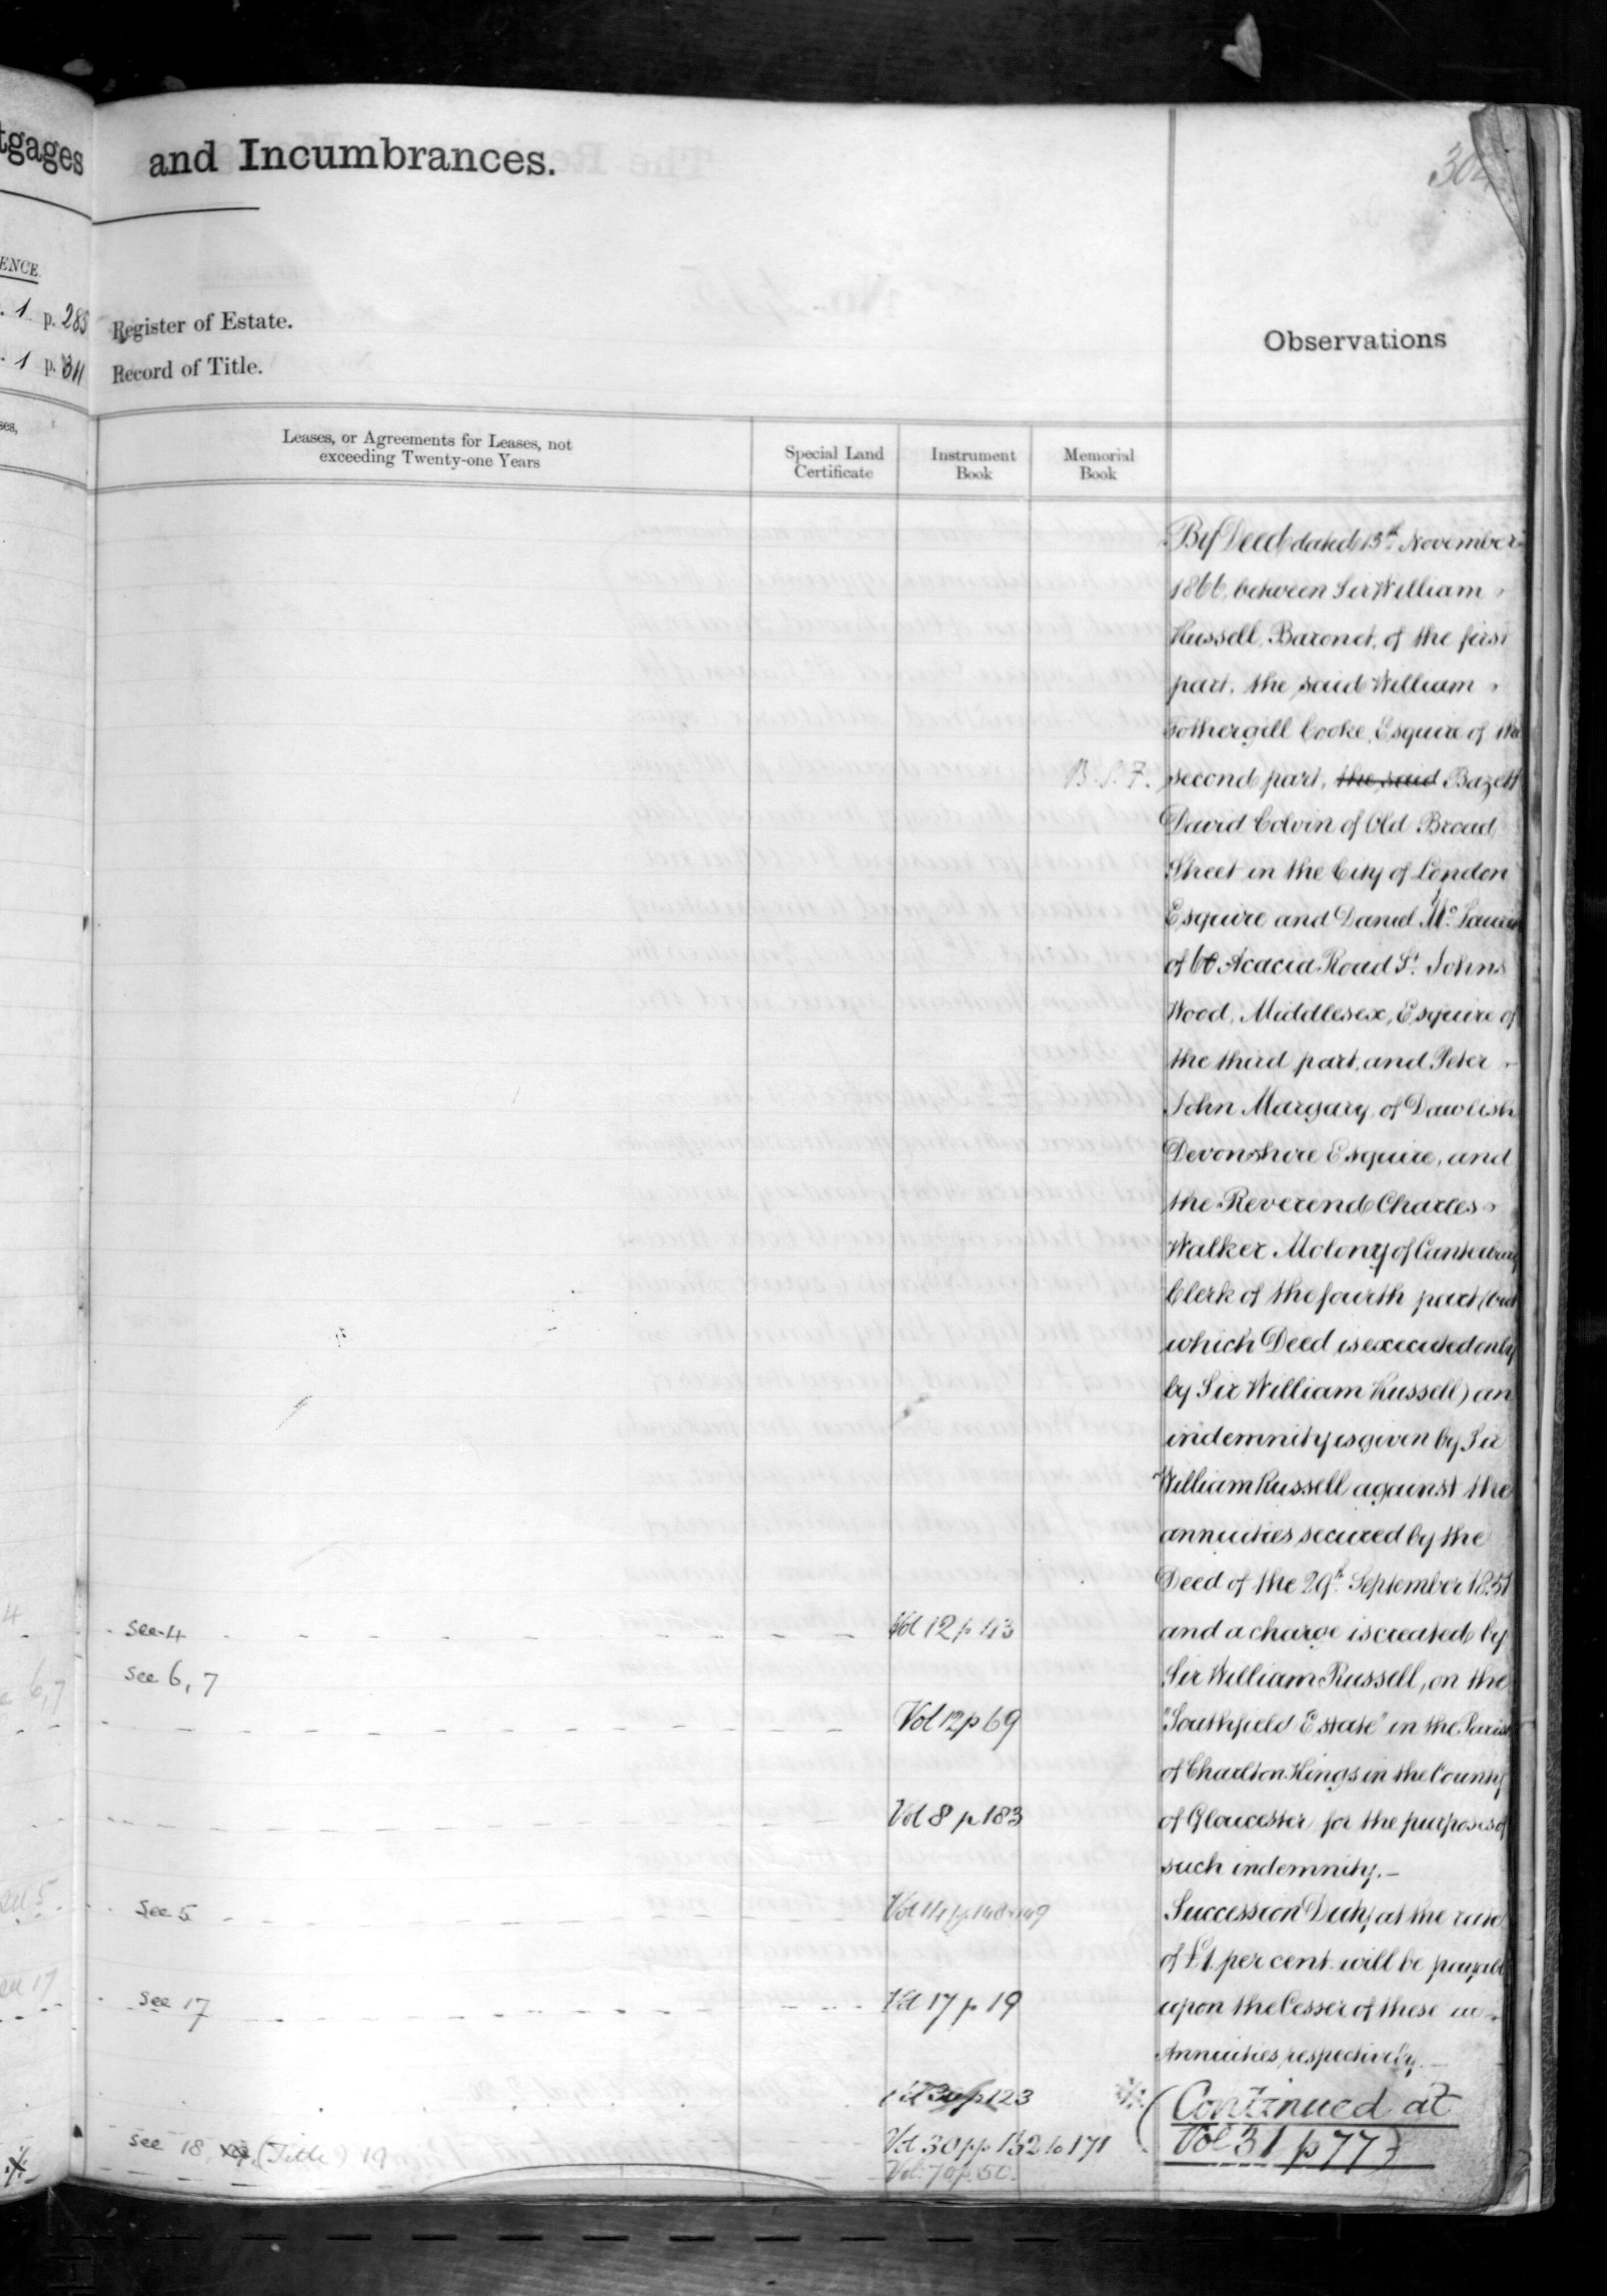 tgages
and Incumbrances.
304
ENCE.
. 1 p. 285 Register of Estate.
. 1 p. 311 Record of Title.
Observations
ses,
Leases, or Agreements for Leases, not
exceeding Twenty-one Years
Special Land
Certificate
Instrument
Book
Memorial
Book
By Deed dated 13th November
1866, between Sir William
Russell, Baronet, of the first
part, the said William
Fothergill Cooke, Esquire of the
B.S.F. second part, the said Bazett
David Colvin of Old Broad
Street in the City of London
Esquire and Daniel
of Acacia Road St. Johns
Wood, Middlesex, Esquire of
the third part, and Peter
John Margary, of Dawlish
Devonshire Esquire, and
the Reverend Charles
Walker Molony of Canterbury
Clerk of the fourth part (but
which Deed is executed only
by Sir William Russell) an
indemnity is given by Sir
William Russell against the
annuities secured by the
Deed of the 29th September 1851
and a charge is created by
Sir William Russell, on the
"Southfield Estate" in the Parish
of Charlton Kings in the County
of Gloucester for the purposes of
such indemnity.—
Succession Duty at the rate
of £1 per cent. will be payable
upon the Cesser of these
Annuities respectively.—
(Continued at
Vol 31 p 77)
4 see 4 Vol 12 p 43
6,7 see 6, 7
Vol 12 p 69
Vol 8 p 183
5 see 5 Vol 14 p 148
17 see 17 Vol 17 p 19
Vol 30 p 123
see 18 (Title) 19 Vol 30 pp 132 to 171
Vol. 70 p. 50.